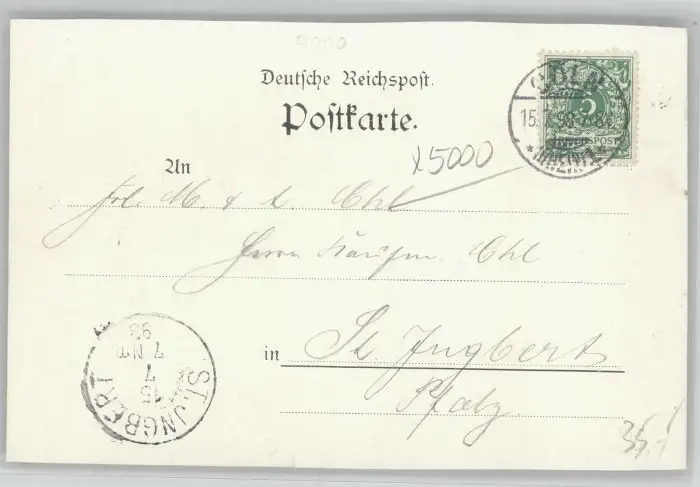 5000
Deutsche Reichspost.
Postkarte.
CÖLN
15. 98. 7-8
* (RHEIN) 1 *
5
REICHSPOST
x5000
An
Frl. M. & L. Ehl
Herrn Kaufm. Ehl
in St Ingbert
Pfalz.
ST. INGBERT
15
7
7 Nm
98
35,-